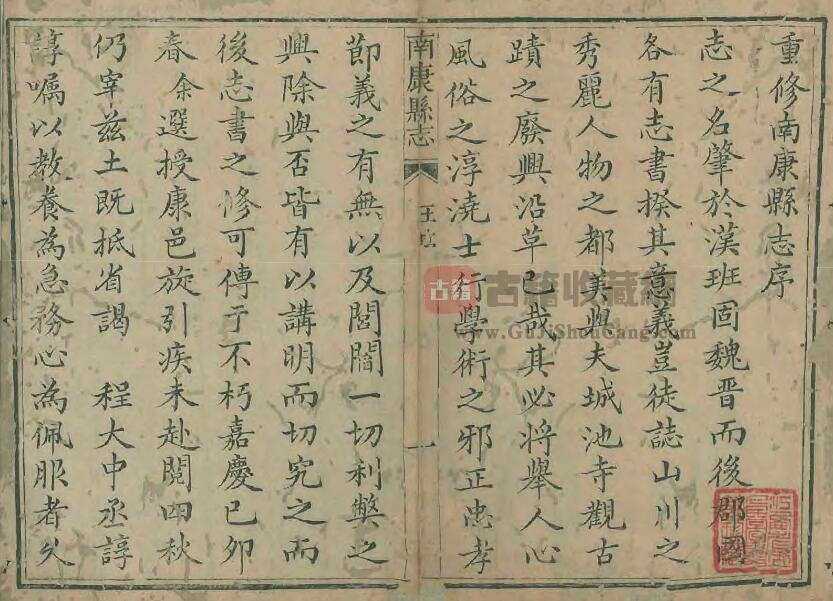 重修南康縣志序
志之名肇於漢班固魏晋而後郡國
各有志書揆其意義豈徒誌山川之
秀麗人物之都美與夫城池寺觀古
蹟之廢興沿革已哉其必將舉人心
風俗之淳澆士行學術之邪正忠孝
南康縣志
王序
一
節義之有無以及閭閻一切利獘之
興除與否皆有以講明而切究之而
後志書之修可傳于不朽嘉慶己卯
春余選授康邑旋引疾未赴閱四秋
仍宰兹土既抵省謁 程大中丞諄
諄嘱以教養為急務心為佩服者久
古籍
古籍收藏網
www.GuJiShouCang.com